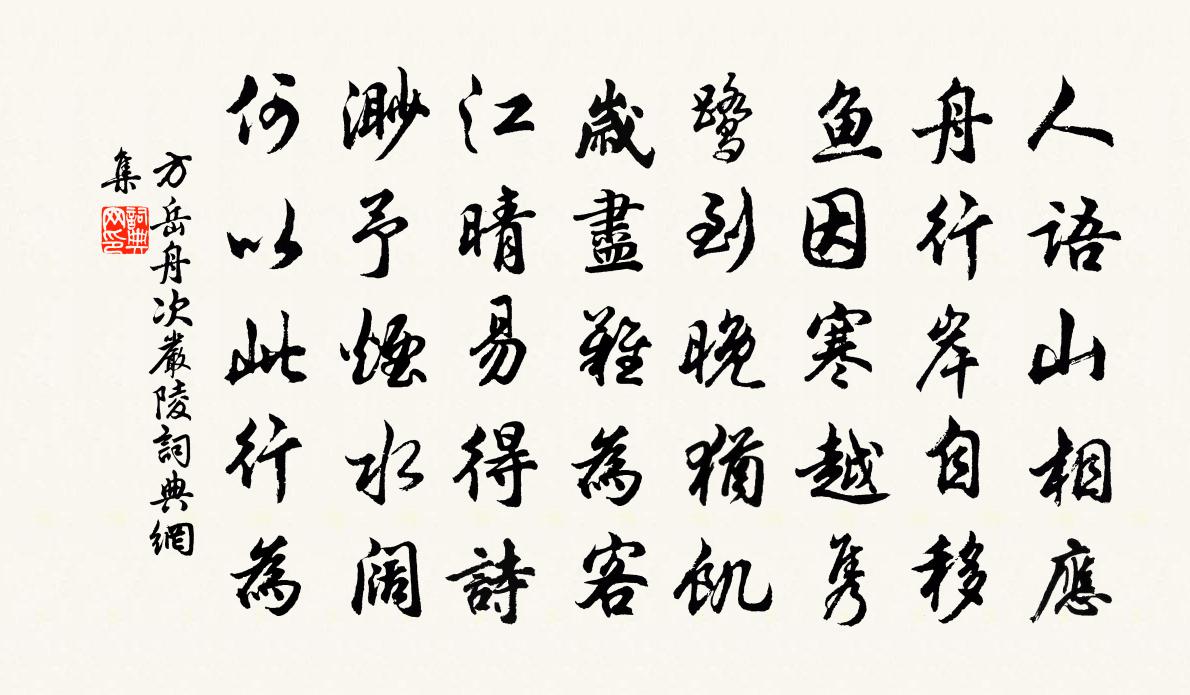 人語山相應
舟行岸自移
鱼因寒越隽
鹭到晚猶飢
歲盡難為客
江晴易得詩
渺予煙水阔
何以此行為
方岳舟次嚴陵詞典網
集
詞典
网印